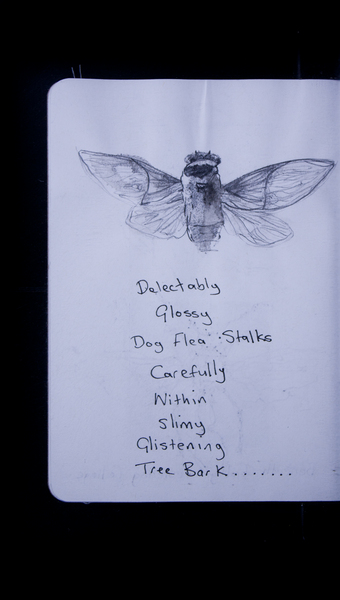 Delectably
Glossy
Dog Flea Stalks
Carefully
Within
Slimy
Glistening
Tree Bark.......